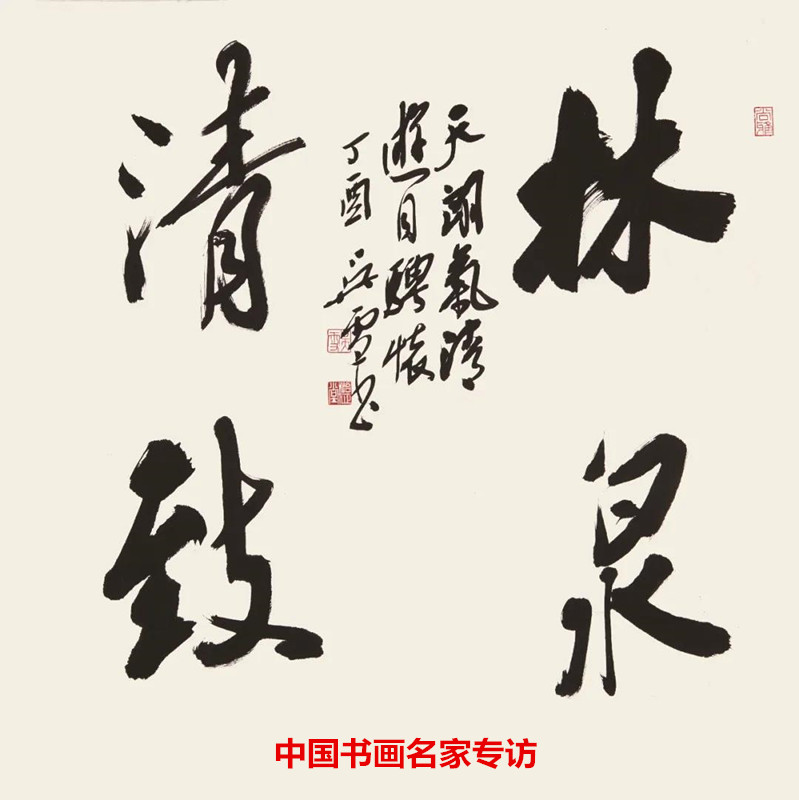 林泉
天朗氣清
遊目騁懷
丁酉 吴雪书
清致
中国书画名家专访